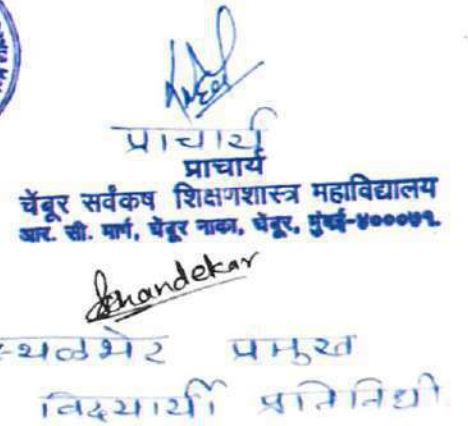 प्राचार्य
प्राचार्य
चेंबूर सर्वंकष शिक्षणशास्त्र महाविद्यालय
आर. सी. मार्ग, चेंबूर नाका, चेंबूर, मुंबई-४०००७१.
Chandekar
स्थळभेट प्रमुख
विद्यार्थी प्रतिनिधी